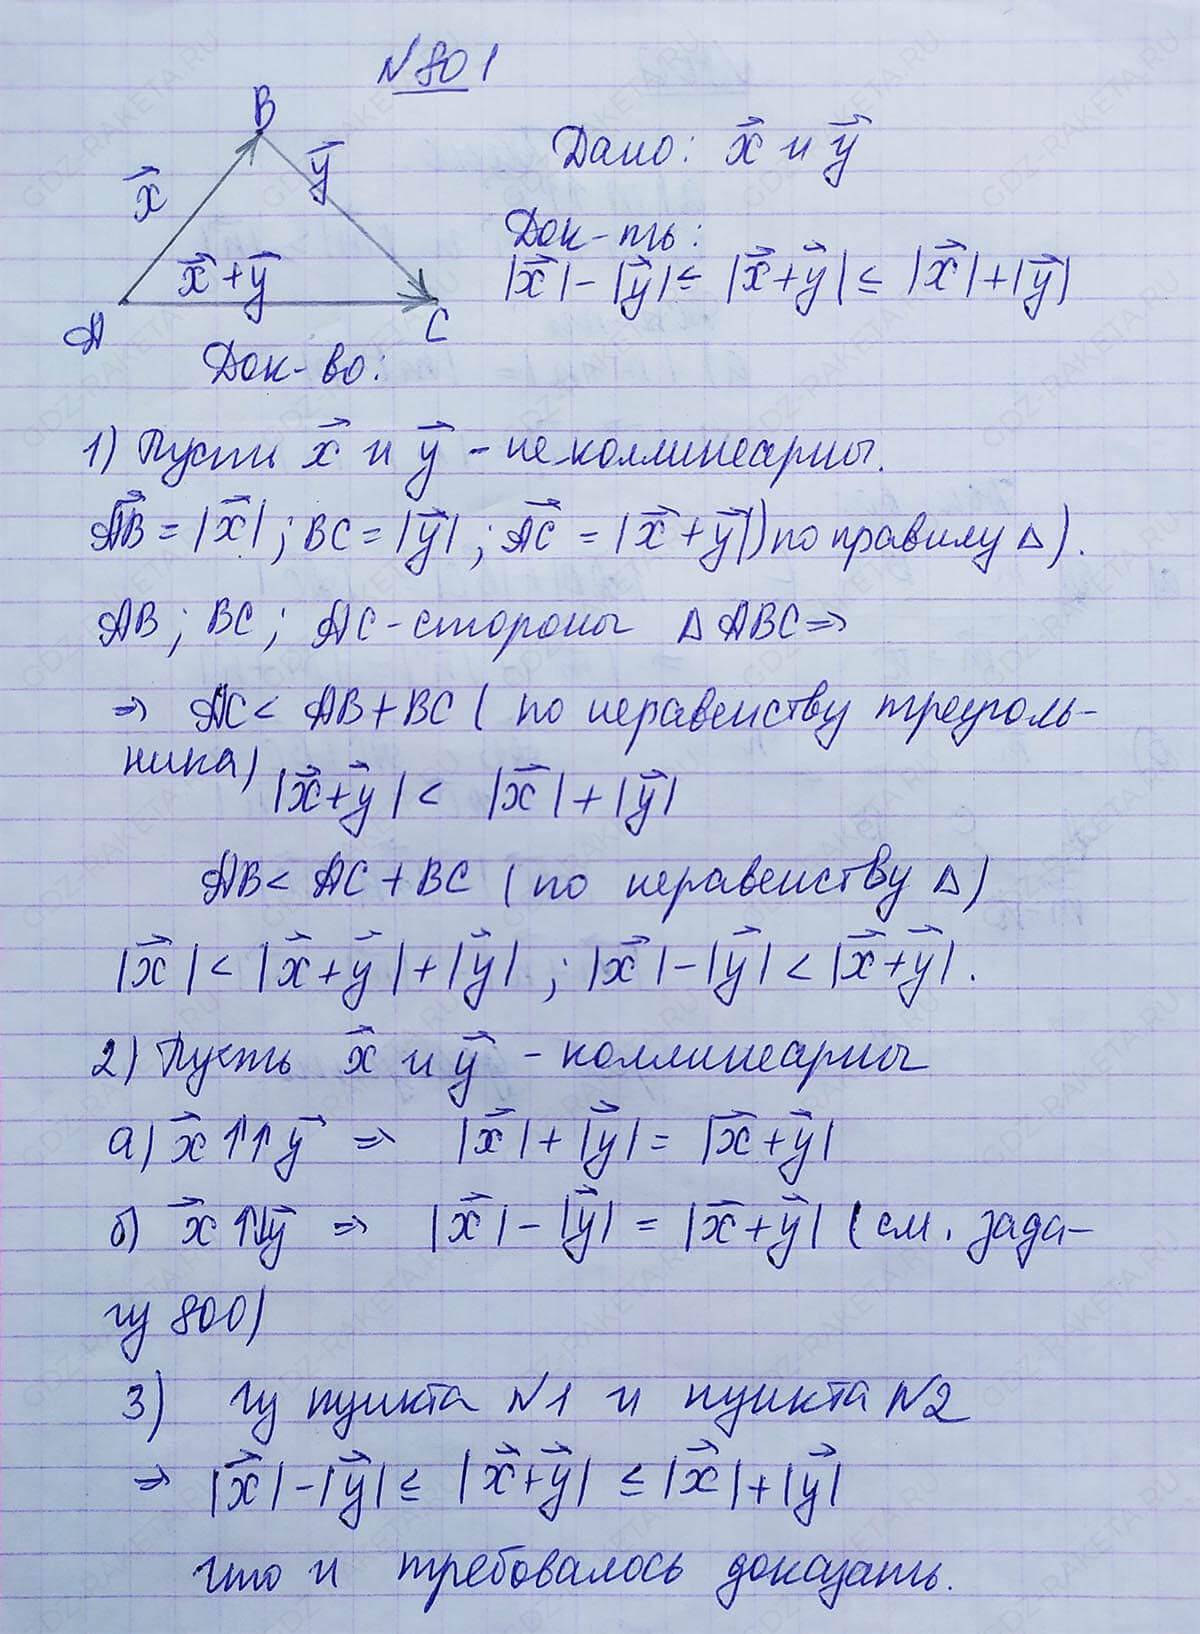 №801
B
x⃗
y⃗
x⃗+y⃗
A
C
Дано: x⃗ и y⃗
Док-ть:
|x⃗|-|y⃗|≤ |x⃗+y⃗|≤ |x⃗|+|y⃗|
Док-во:
1) Пусть x⃗ и y⃗ - не коллинеарны.
A⃗B⃗ = |x⃗|; BC = |y⃗|; A⃗C⃗ = |x⃗+y⃗|) по правилу Δ).
AB; BC; AC-стороны Δ ABC⇒
⇒ AC< AB+BC ( по неравенству треуголь-
ника)
|x⃗+y⃗|< |x⃗|+|y⃗|
AB< AC+BC (по неравенству Δ)
|x⃗|<|x⃗+y⃗|+|y⃗|; |x⃗|-|y⃗|<|x⃗+y⃗|.
2) Пусть x⃗ и y⃗ - коллинеарны
а) x⃗↑↑y⃗ ⇒ |x⃗|+|y⃗|= |x⃗+y⃗|
б) x⃗↑↓y⃗ ⇒ |x⃗|-|y⃗|= |x⃗+y⃗| (см. зада-
чу 800)
3) чу пункта №1 и пункта №2
⇒ |x⃗|-|y⃗|≤ |x⃗+y⃗| ≤|x⃗|+|y⃗|
что и требовалось доказать.
GDZ-RAKETA.RU